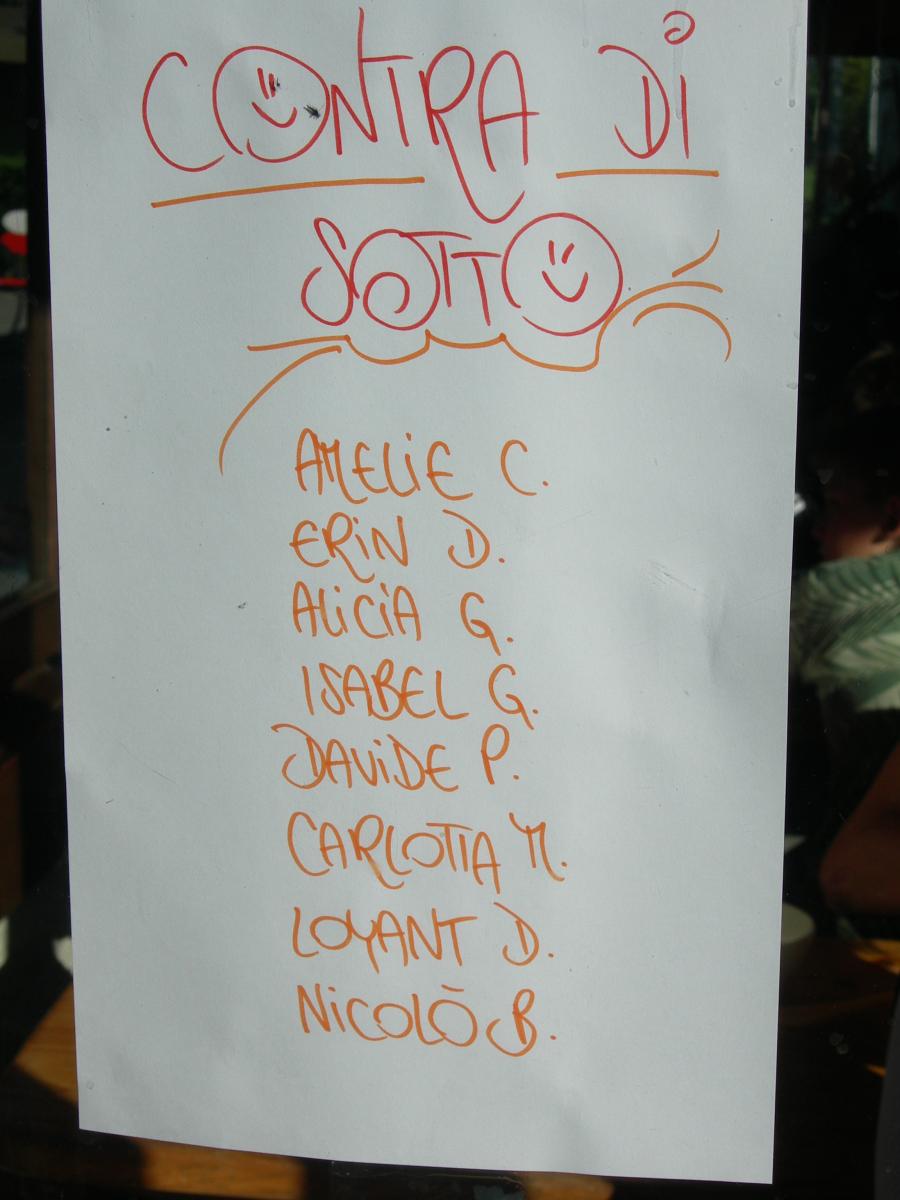 CONTRA DI
SOTTO
AMELIE C.
ERIN D.
ALICIA G.
ISABEL G.
DAVIDE P.
CARLOTTA M.
LOYANT D.
NICOLÒ B.